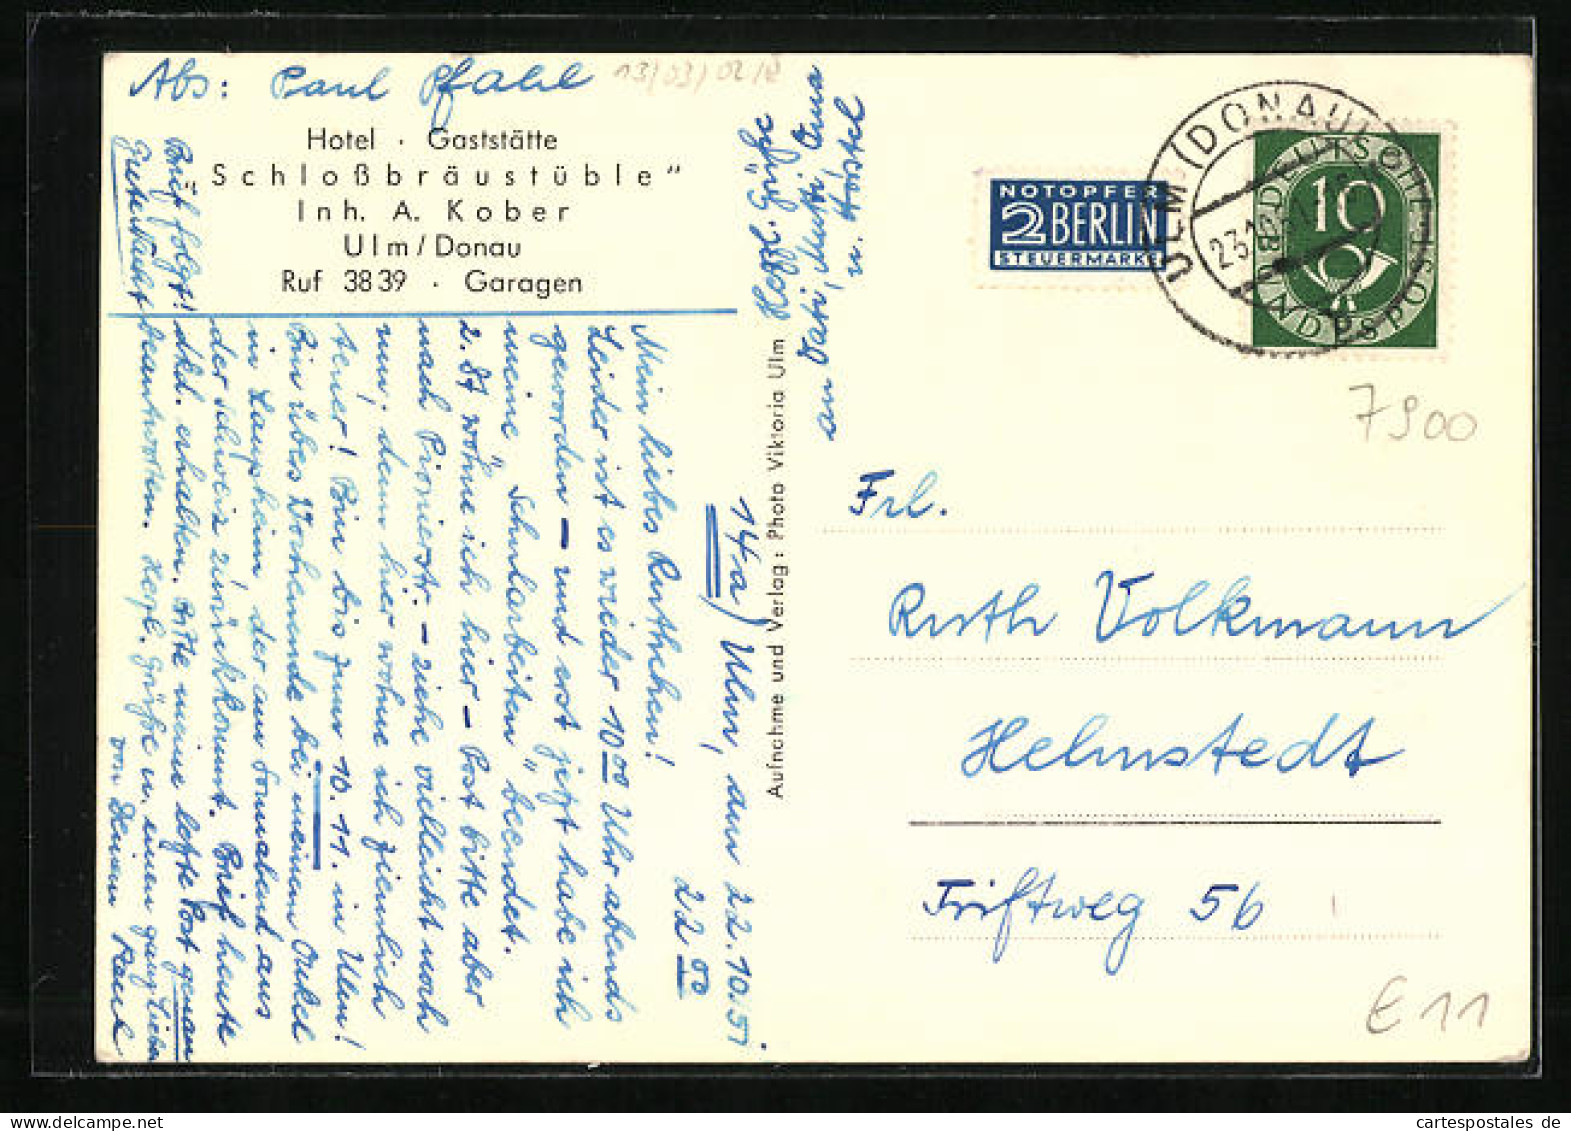 Abs: Paul Pfahl
13/03/02/8
Hotel · Gaststätte
Schloßbräustüble"
Inh. A. Kober
Ulm/Donau
Ruf 3839 · Garagen
14a) Ulm, am 22.10.51
22 00
Mein liebes Ruthchen!
Leider ist es wieder 10 00 Uhr abends
geworden – und erst jetzt habe ich
meine „Schularbeiten" beendet.
2. 87 wohne ich hier – Post bitte aber
nach Pionierstr. – ziehe vielleicht noch
um, denn hier wohne ich ziemlich
teuer! Bin bis zum 10.11. in Ulm!
Bin übers Wochenende bei meinem Onkel
in Laupheim der am Sonnabend aus
der Schweiz zurückkommt. Brief heute
dkd. erhalten. Bitte meine letzte Post genau
beantworten. Herzl. Grüße u. einen ganz lieben
von Deinem Paul
Brief folgt!
Gute Nacht
Herzl. Grüße
an Vati, Mutti, Oma
u.
Aufnahme und Verlag: Photo Viktoria Ulm
NOTOPFER
2 BERLIN
STEUERMARKE
ULM (DONAU)
23.10.51
DEUTSCHE
BUNDESPOST
10
7900
Frl.
Ruth Volkmann
Helmstedt
Triftweg 56
E11
cartespostales de